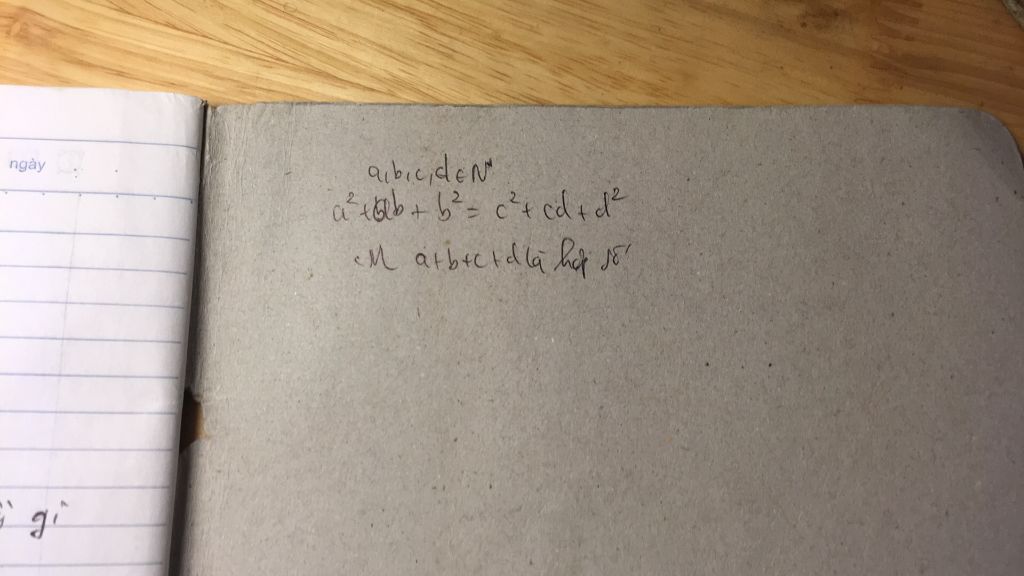 ngày
a,b,c,d ∈ N*
a² + ab + b² = c² + cd + d²
CM a+b+c+d là hợp số
gì